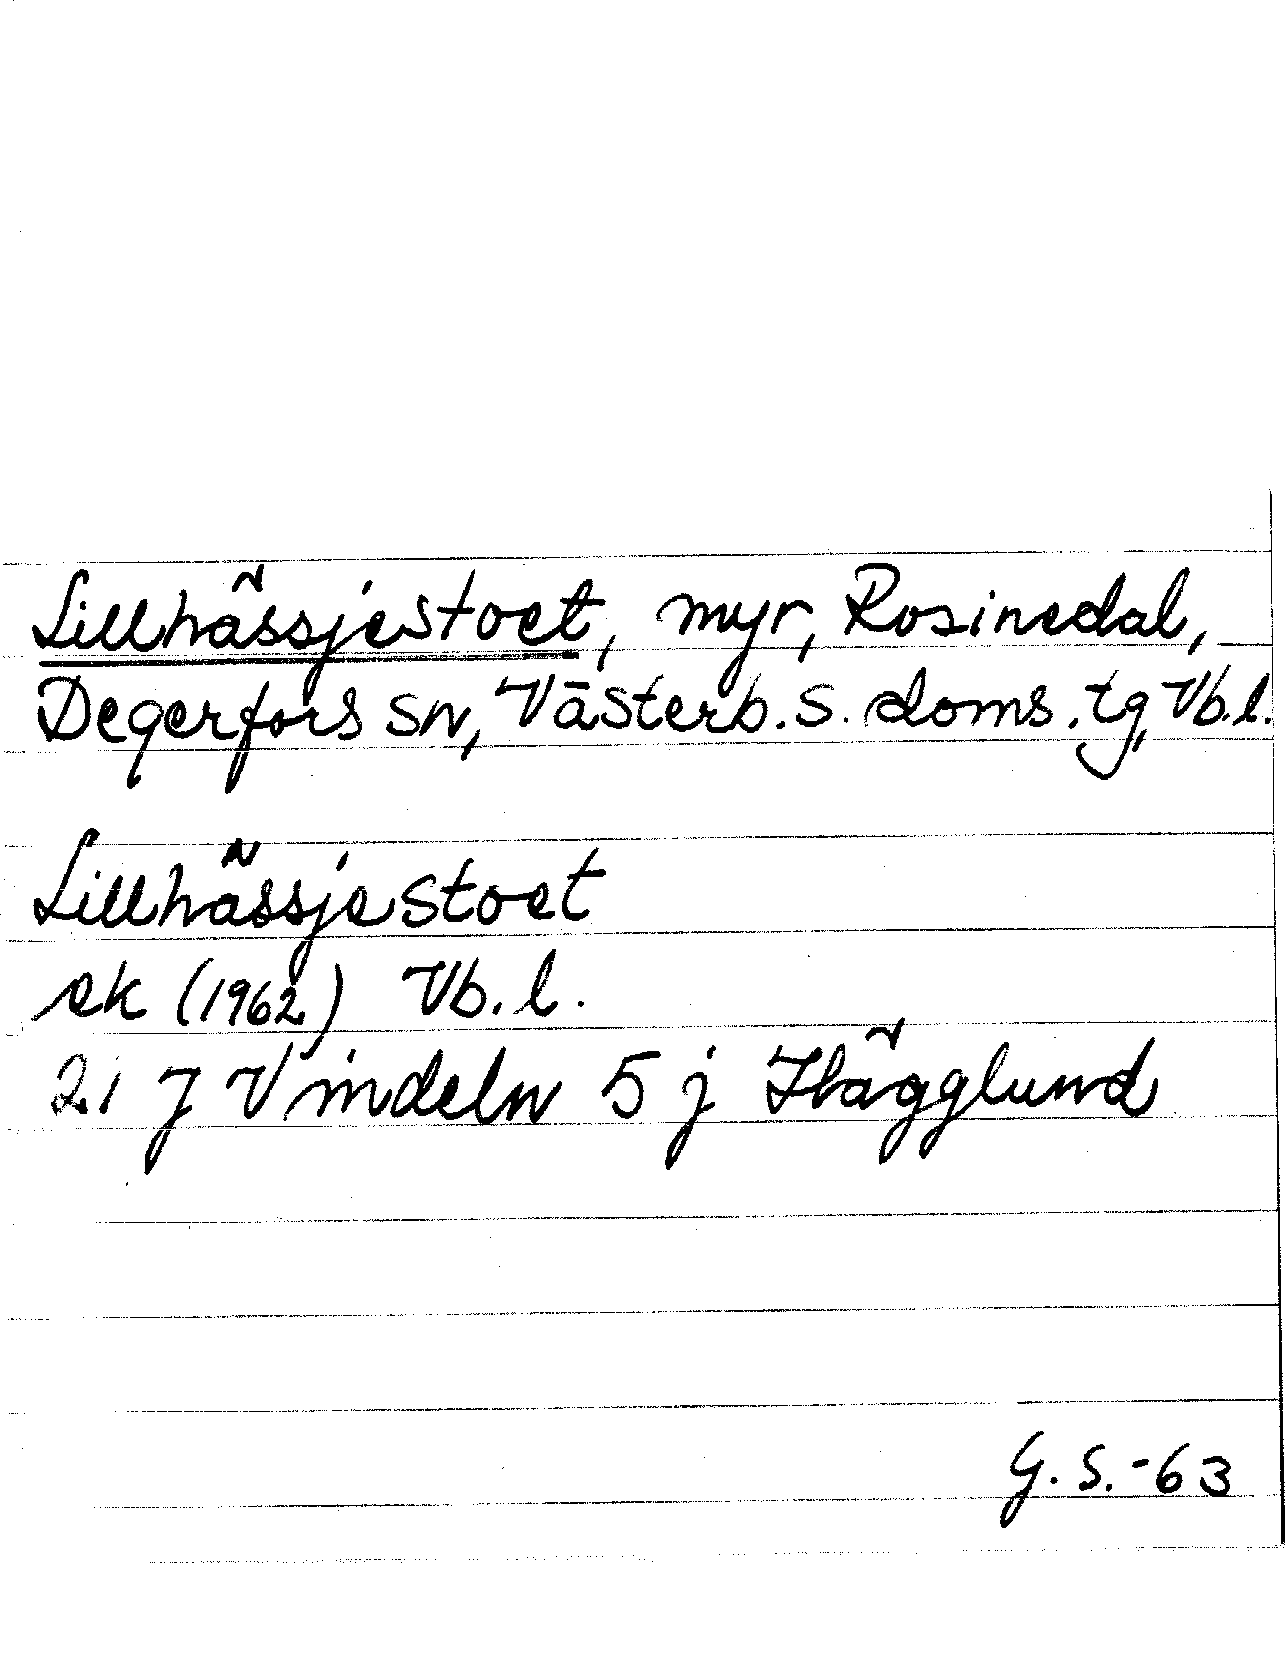 Lillhässjestoet, myr, Rosinedal,
Degerfors sn, Västerb. s. doms. tg, Vb.l.
Lillhässjestoet
ek (1962) Vb. l.
21 J Vindeln 5 j Hägglund
G. S.-63